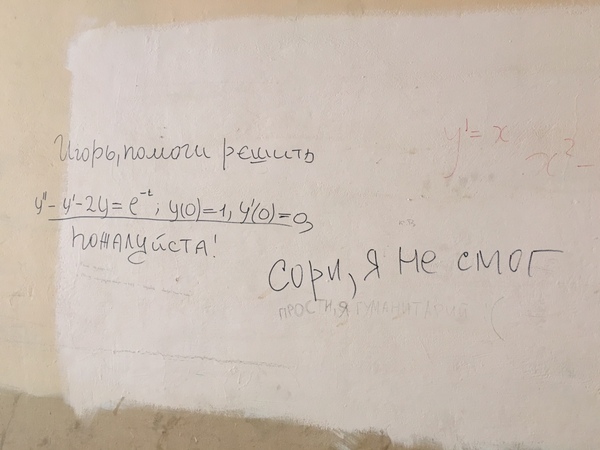 Игорь, помоги решить
y''-y'-2y=e^-t; y(0)=1, y'(0)=0
пожалуйста!
y'= x
x²-
Сори, я не смог
ПРОСТИ, Я ГУМАНИТАРИЙ